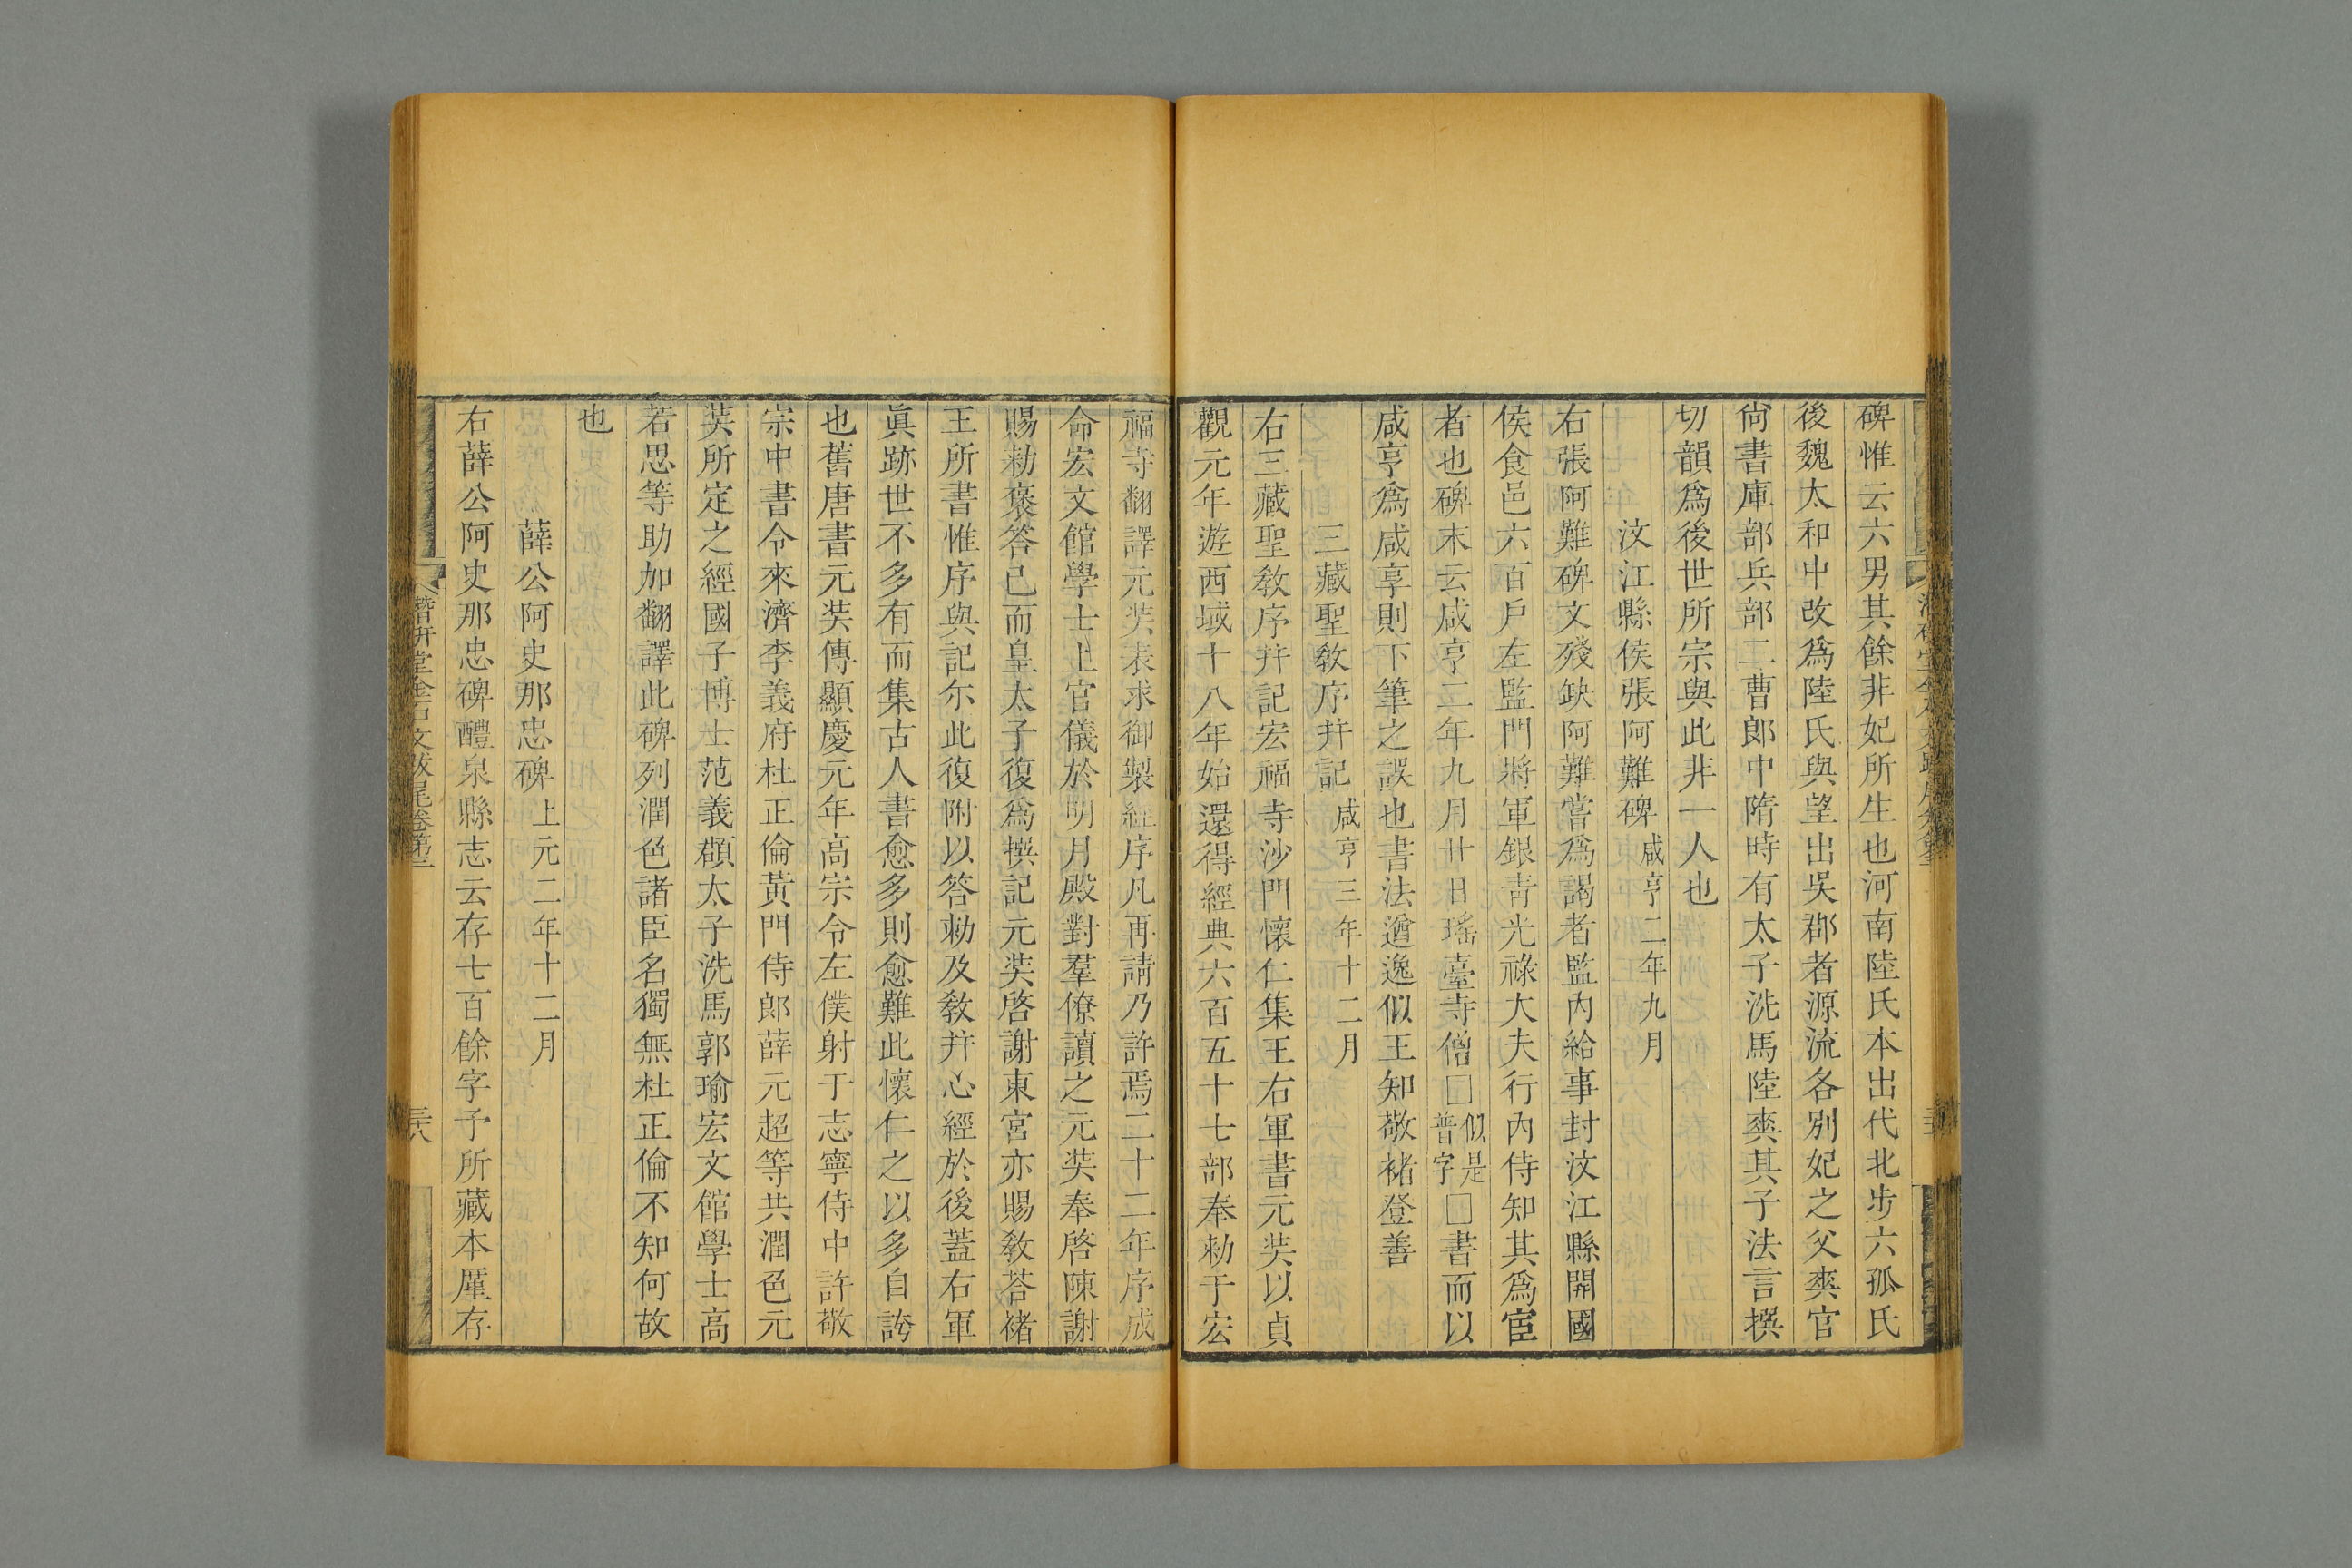 碑惟云六男其餘非妃所生也河南陸氏本出代北步六孤氏
後魏太和中改爲陸氏與望出吳郡者源流各別妃之父爽官
尙書庫部兵部二曹郞中隋時有太子洗馬陸爽其子法言撰
切韻爲後世所宗與此非一人也
汶江縣侯張阿難碑咸亨二年九月
右張阿難碑文殘缺阿難嘗爲謁者監內給事封汶江縣開國
侯食邑六百戶左監門將軍銀靑光祿大夫行內侍知其爲宦
者也碑末云咸亨二年九月廿日瑤臺寺僧□似是普字□書而以
咸亨爲咸享則下筆之誤也書法遒逸似王知敬褚登善
三藏聖敎序幷記咸亨三年十二月
右三藏聖敎序幷記宏福寺沙門懷仁集王右軍書元奘以貞
觀元年遊西域十八年始還得經典六百五十七部奉勑于宏
福寺翻譯元奘表求御製經序凡再請乃許焉二十二年序成
命宏文館學士上官儀於明月殿對羣僚讀之元奘奉啓陳謝
賜勑褒答已而皇太子復爲撰記元奘啓謝東宮亦賜敎荅褚
王所書惟序與記尓此復附以答勑及敎幷心經於後蓋右軍
眞跡世不多有而集古人書愈多則愈難此懷仁之以多自誇
也舊唐書元奘傳顯慶元年高宗令左僕射于志寧侍中許敬
宗中書令來濟李義府杜正倫黃門侍郞薛元超等共潤色元
奘所定之經國子博士范義頵太子洗馬郭瑜宏文館學士高
若思等助加翻譯此碑列潤色諸臣名獨無杜正倫不知何故
也
薛公阿史那忠碑上元二年十二月
右薛公阿史那忠碑醴泉縣志云存七百餘字予所藏本厪存
潛硏堂金石文跋尾卷第三
三六